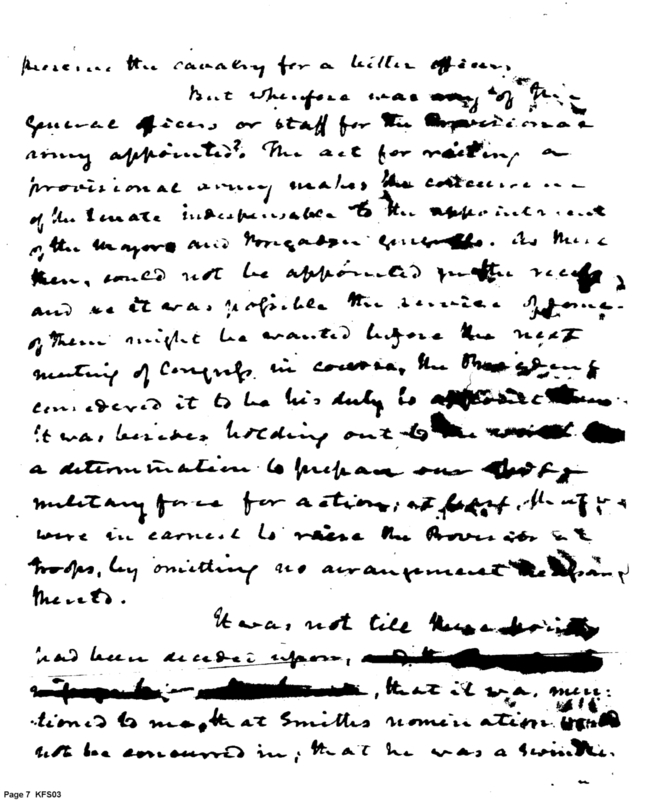 preserve the cavalry for a better officer.
But wherefore was any of the
General officers or staff for the Provisional
army appointed? The act for raising a
provisional army makes the concurrence
of the Senate indispensable to the appointment
of the Majors and Brigadier Generals. As these
then, could not be appointed in the recess,
and as it was possible the service of some
of them might be wanted before the next
meeting of Congress in course, the President
considered it to be his duty to appoint them.
It was besides holding out to the world
a determination to prepare our
military force for action; at least, that we
were in earnest to raise the Provisional
troops, by omitting no arrangement
ments.
It was not till these points
had been decided upon,
, that it was men:
tioned to me, that Smiths nomination would
not be concurred in; that he was a swindler
Page 7 KFS03